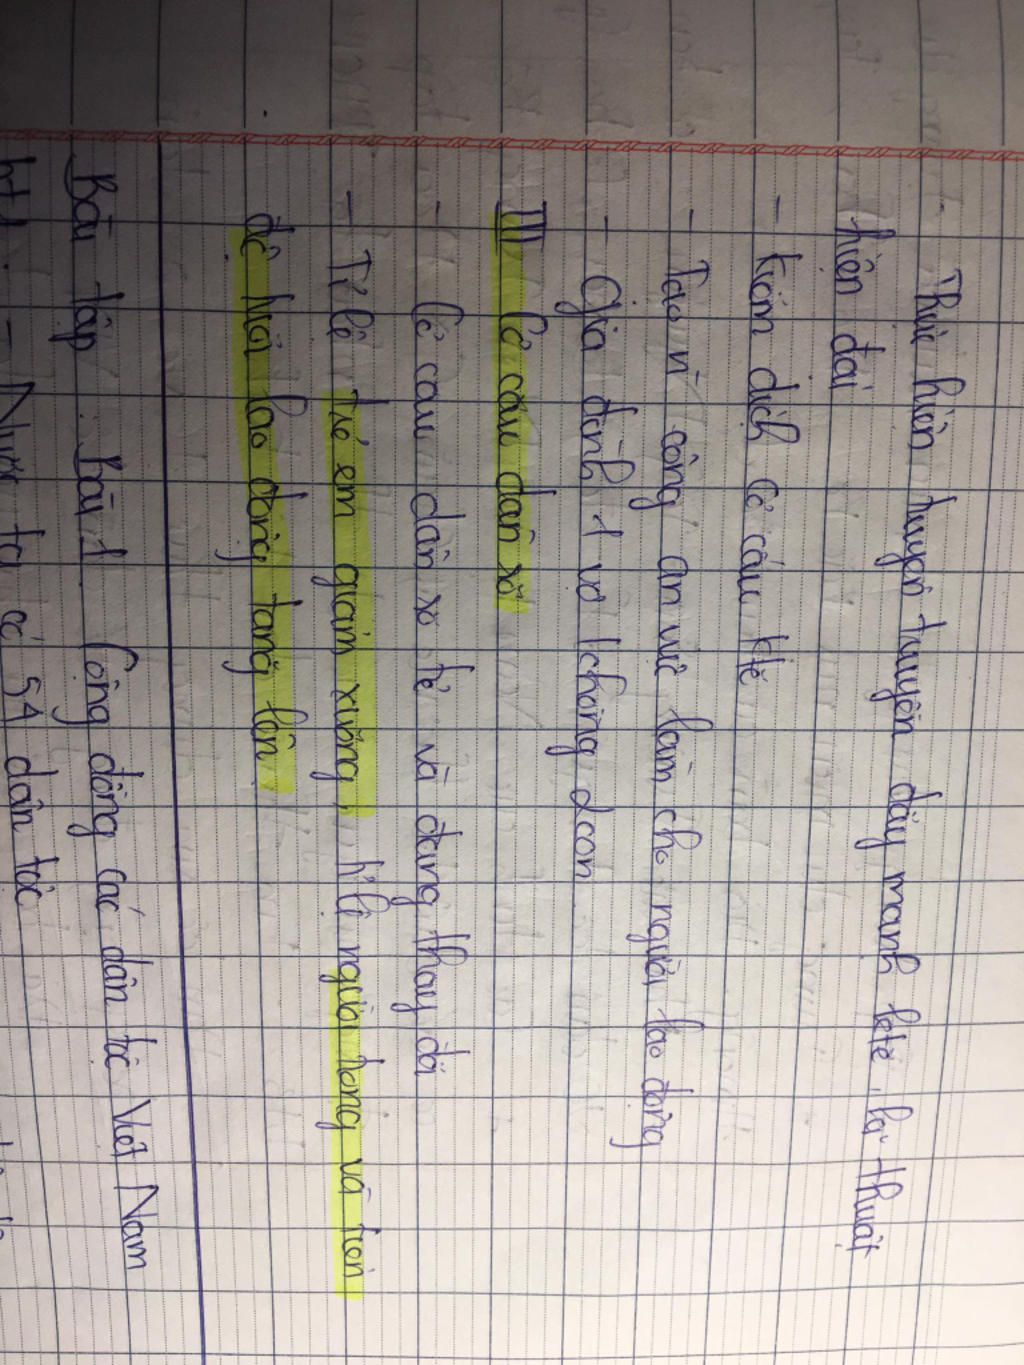 - Thực hiện truyền tuyên đẩy mạnh ktế, kĩ thuật
hiện đại
- Kiểm dịch cơ cấu ktế
- Tạo n` công ăn việc làm cho người lao động
- Gia đình 1 vợ 1 chồng 2 con
III Cơ cấu dân số
- Cơ cấu dân số trẻ và đang thay đổi
- Tỉ lệ trẻ em giảm xuống, tỉ lệ người trong và trên
độ tuổi lao động tăng lên
Bài tập Bài 1 Cộng đồng các dân tộc Việt Nam
- Nước ta có 54 dân tộc